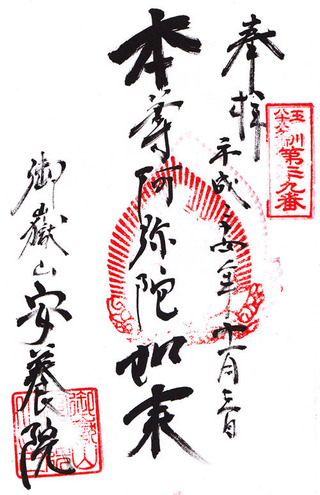 奉拝
玉川
八十八ヶ所
第三九番
平成二四年十一月三日
本尊阿弥陀如来
御嶽山安養院
御嶽山